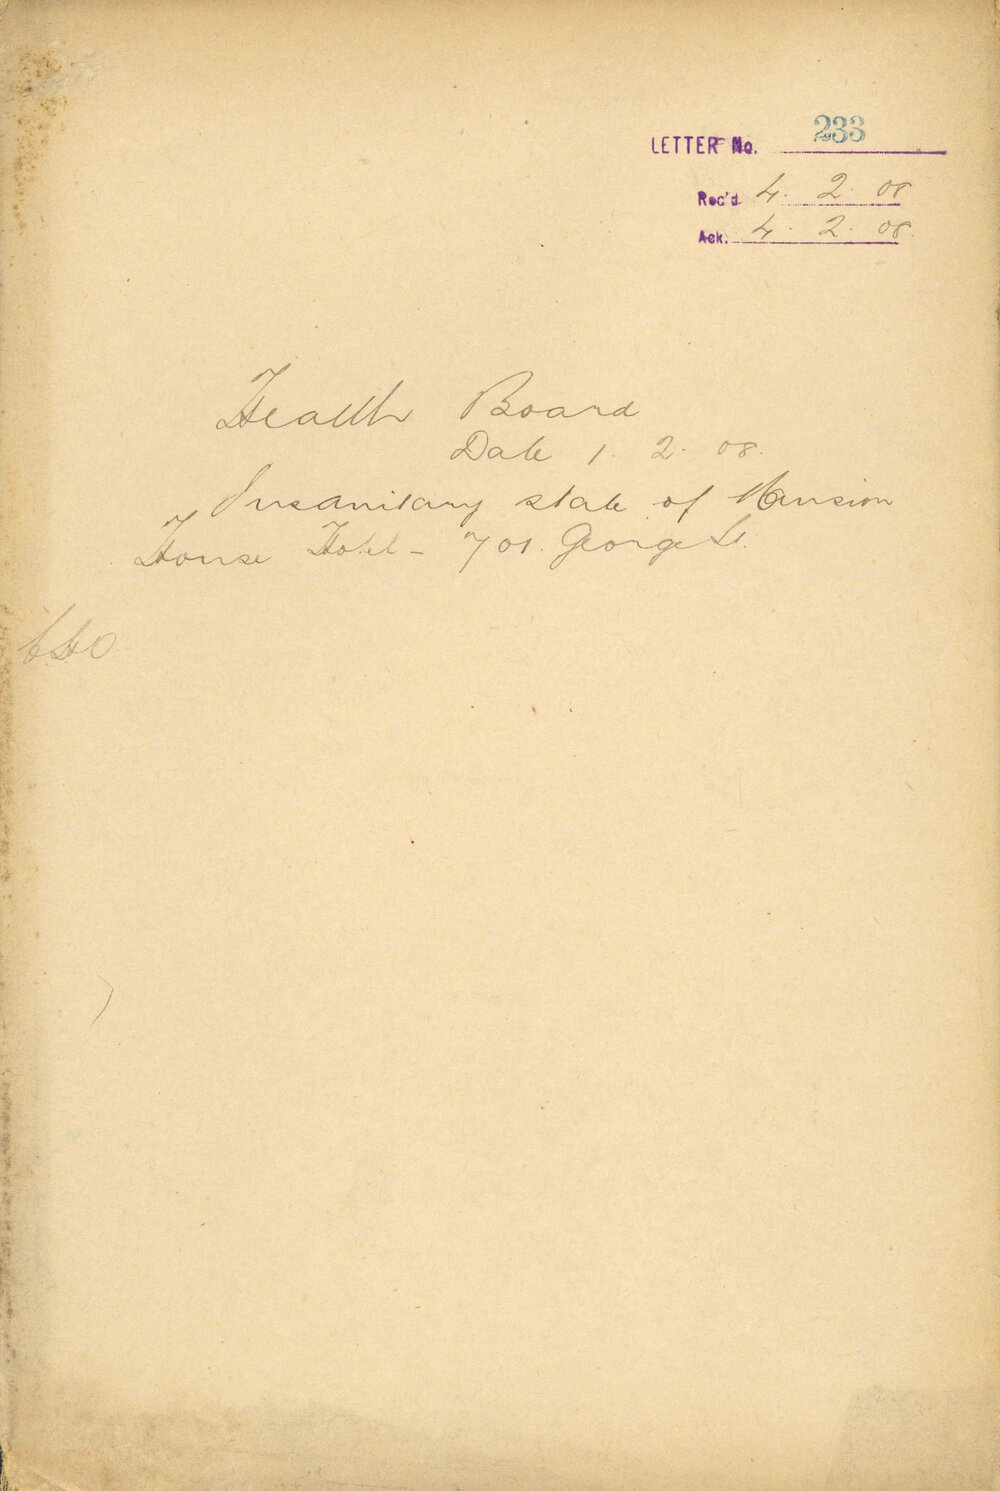 LETTER No. 233
Rec'd 4. 2. 08
Ack. 4. 2. 08.
Health Board
Date 1. 2. 08.
Insanitary state of Mansion
House Hotel - 701. George St.